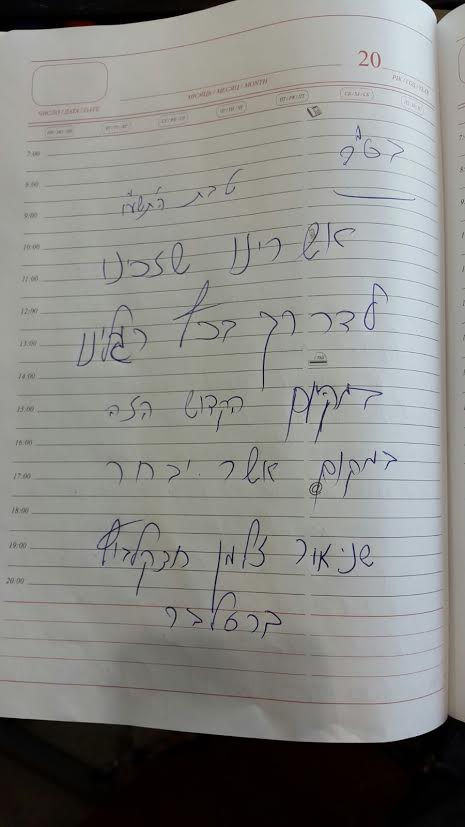 20
МІСЯЦЬ / МЕСЯЦ / MONTH
ЧИСЛО / ДАТА / DATE
7:00
8:00
טבת
9:00
10:00
אשרינו שזכינו
11:00
12:00
לדרוך בכל רגלינו
13:00
14:00
במקום הקדוש הזה
15:00
16:00
במקום אשר יבחר
17:00
18:00
שניאור זלמן
19:00
20:00